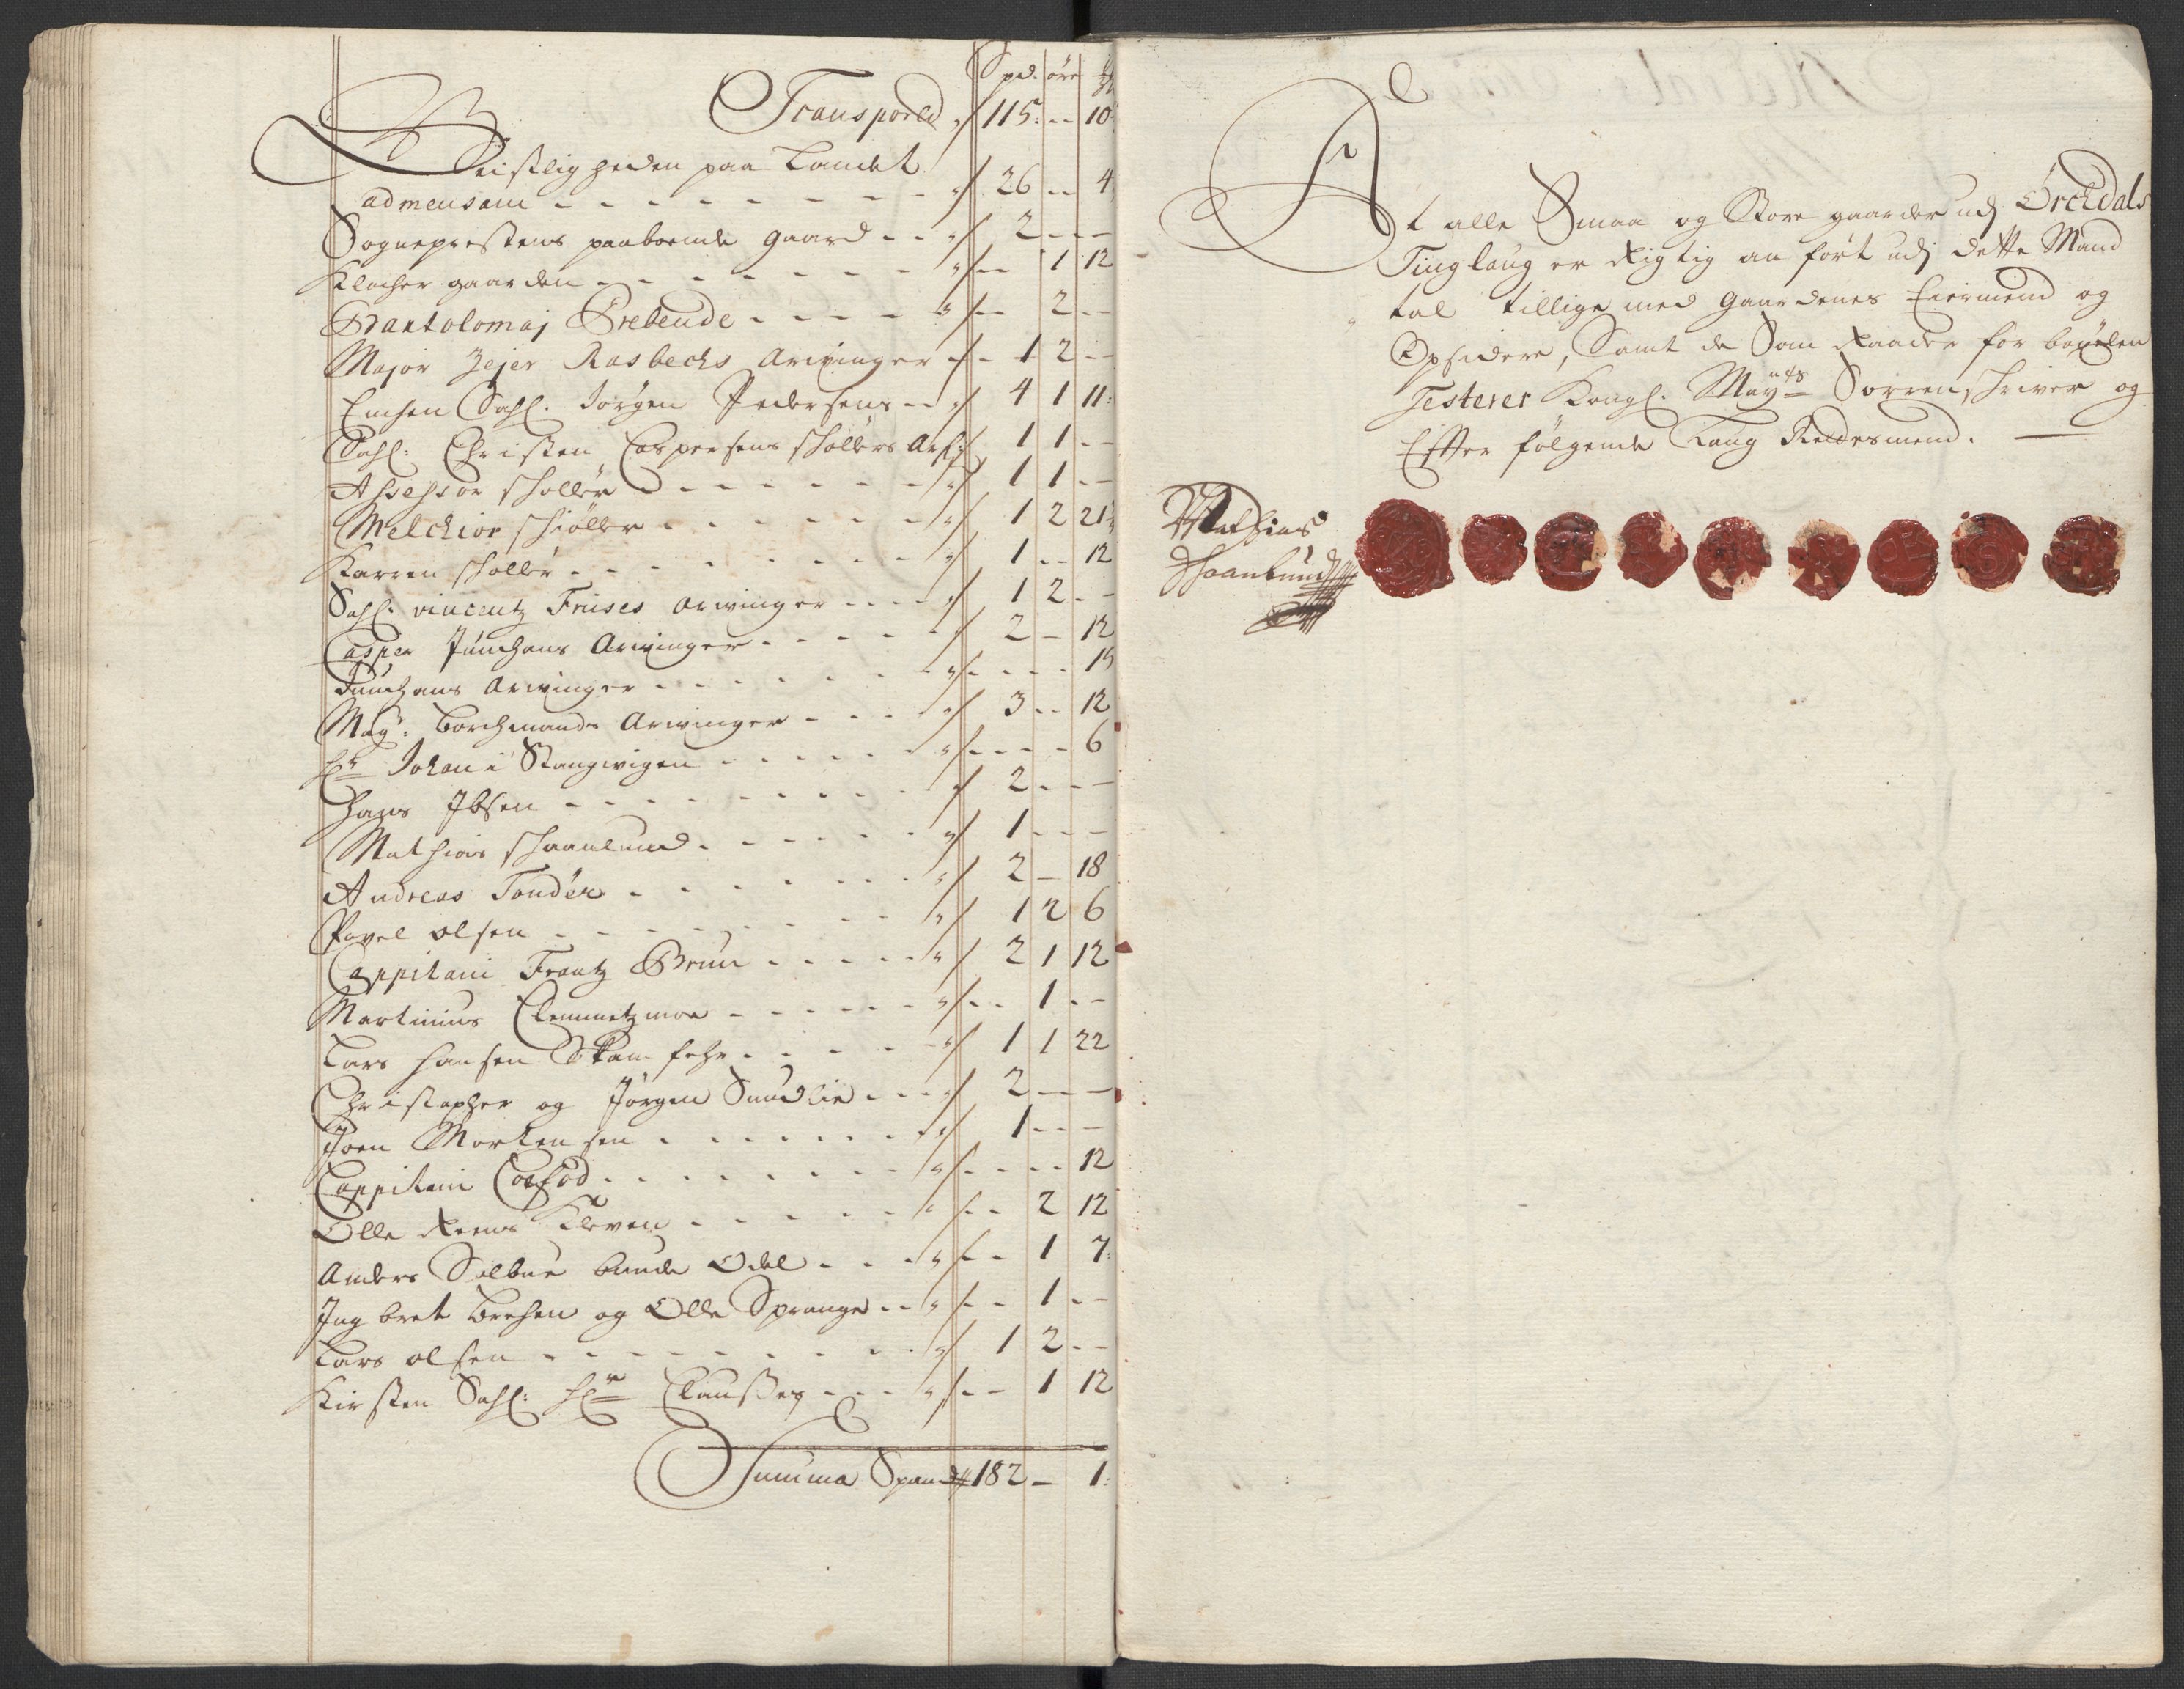 Spd. öre
Transpored // 115: -- 10
Geistligheden paa Landet
admensam - - - - - - - - // 26 -- 4
Sogneprestens paaboende gaard - - // 2 - - -
Klocher gaarden - - - - - - - // -- 1 12
Bartolomaj Prebende - - - - // -- 2 --
Major Zejer Rosbechs Arvinger // 1 2 --
Enchen Sahl. Jørgen Pedersens -- // 4 1 11:
Sahl: Christen Caspersens skøllers Arf: // 1 1 --
Assessor skøller - - - - - - - // 1 1 --
Melchior schiøller - - - - - - // 1 2 21
Karren skøller - - - - - - - - // 1 -- 12
Sahl: vincentz Friises Arvinger - - - // 1 2 --
Casper Junghans Arvinger - - - - - // 2 - 12
Junghans Arvinger - - - - - - - // - - - 15
May: Borchmands Arvinger - - - // 3 -- 12
Hr Johan i Stangvigen - - - - - // - - - - 6
Hans Ibsen - - - - - - - - - // 2 - - -
Mathias skaanlund - - - - - // 1 - - -
Andreas Tonder - - - - - - - // 2 - 18
Povel olsen - - - - - - - - // 1 2 6
Cappitani Frantz Brun - - - - - // 2 1 12
Martinus Clemmetzmoe - - - - - // -- 1 --
Lars Hansen Skamfehr - - - - // 1 1 22
Christopher og Jørgen Sundlie - - - // 2 - - -
Joen Mortensen - - - - - - - // 1 - - -
Cappitani Coefod - - - - - - - // - - - - 12
Olle Reens Kleven - - - - - // -- 2 12
Anders Selbue bunde Odel - - - // -- 1 7:
Ingbret Brehen og Olle Sprauge - - // -- 1 --
Lars olsen - - - - - - - - - // 1 2 --
Kirsten Sahl: Hr Claußes - - - // -- 1 12
Summa Spand // 182 - 1:
At alle Smaa og Store gaarder udj Orchdals
Tinglaug er Rigtig anført udj dette Mand
tal tillige med Gaardenes Eiermend og
Opsidere, Samt de Som Raader for bøxelen
Testerer Kongl. Mayts Sorrenschriver og
Effterfølgende Laug Rettesmend. —
Mathias
Skaanlund